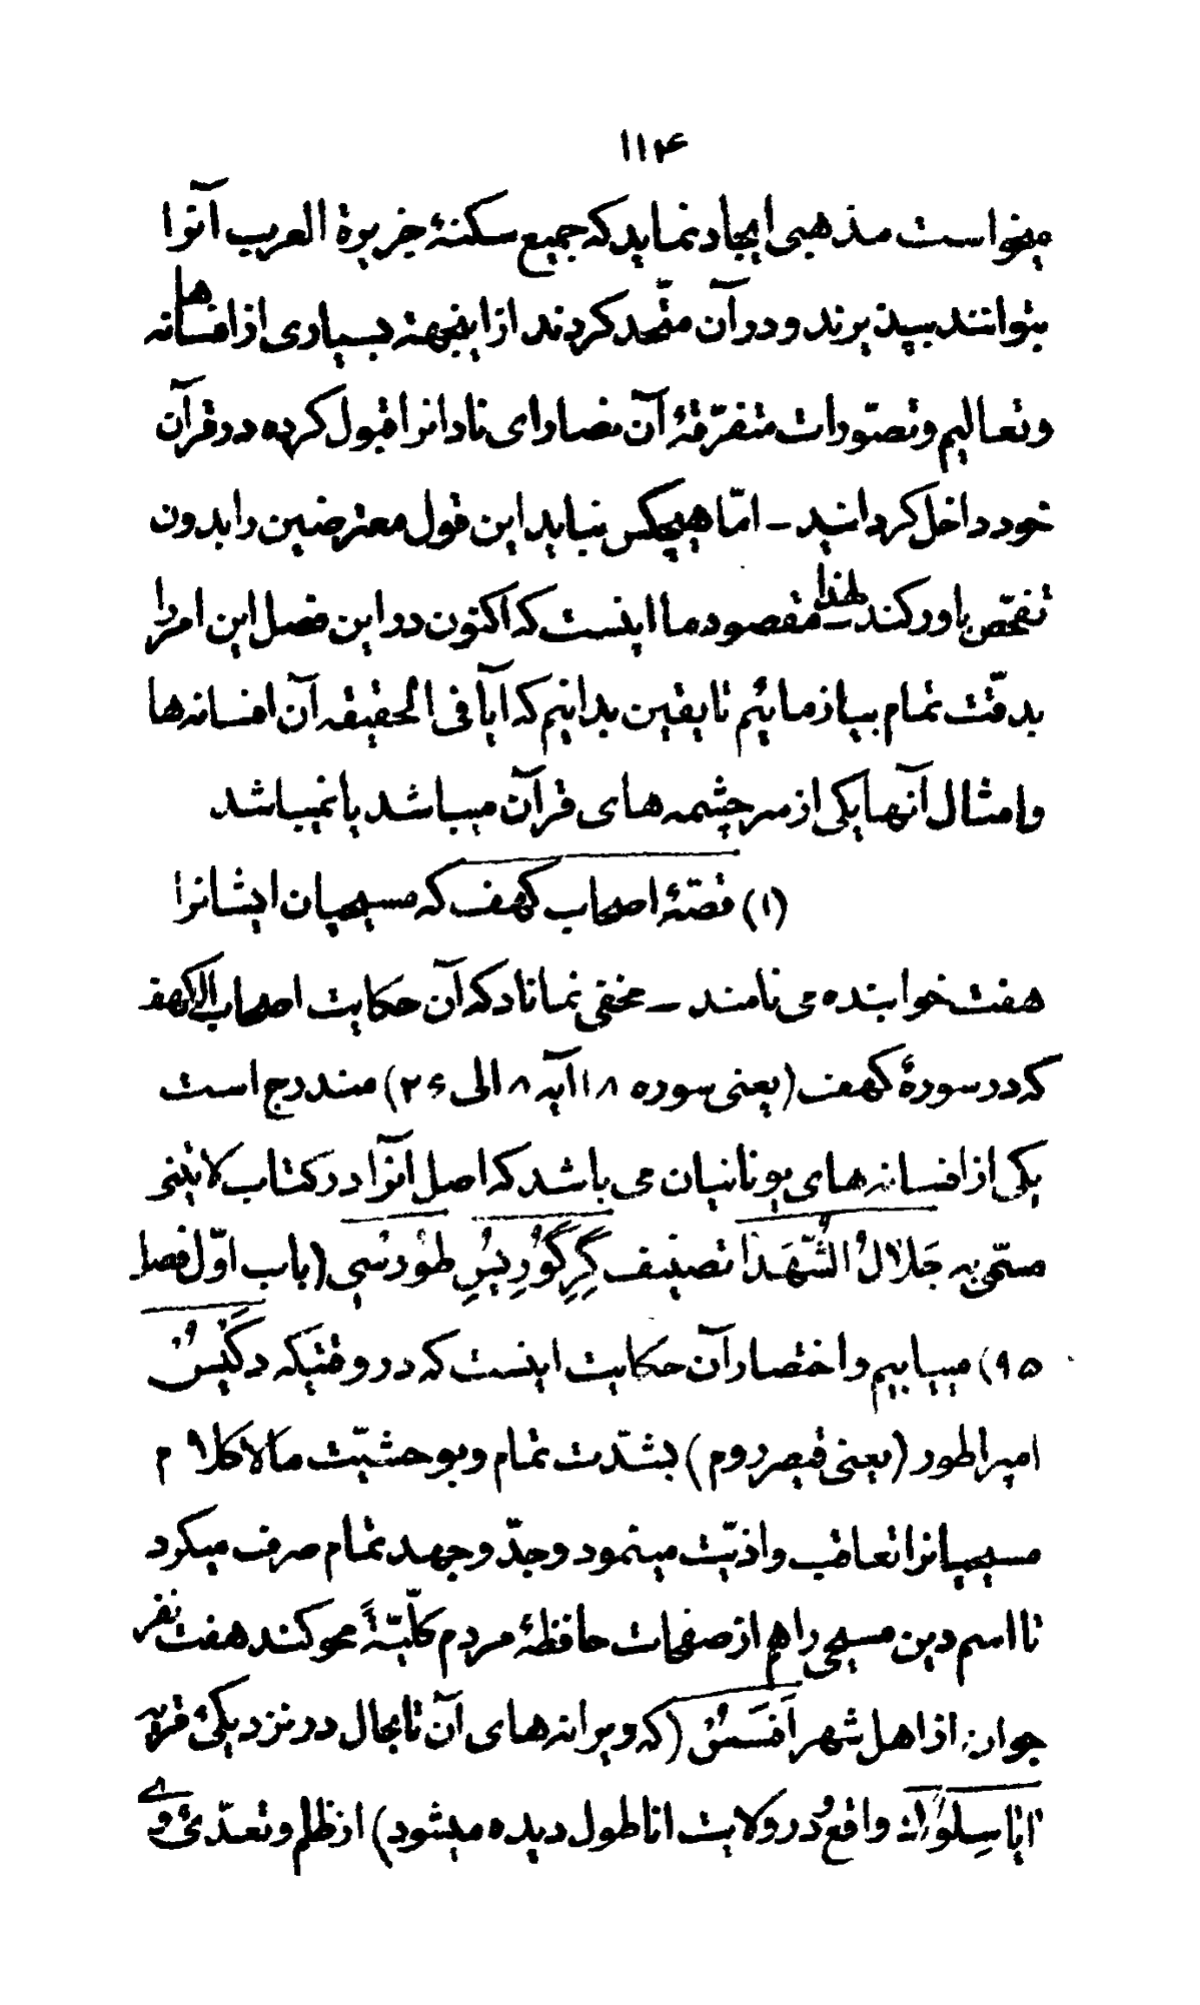 ۱۱۴
میخواست مذهبی ایجاد نماید که جمیع سکنهٔ جزیرة العرب آنرا
بتوانند بپذیرند و در آن متّحد گردند از اینجهة بسیاری از افسانه ها
و تعالیم و تصوّرات متفرّقهٔ آن نصارای نادانرا قبول کرده در قرآن
خود داخل گردانید ــ امّا هیچکس نباید این قول معترضین را بدون
تفحّص باور کند ــ لهذا مقصود ما اینست که اکنون در این فصل این امر را
بدقّت تمام بیازمائیم تا یقین بدانیم که آیا فی الحقیقه آن افسانه ها
و امثال آنها یکی از سرچشمه های قرآن میباشد یا نمیباشد
(۱) قصّهٔ اصحاب کهف که مسیحیان ایشانرا
هفت خوابنده می نامند ــ مخفی نماناد که آن حکایت اصحاب الکهف
که در سورهٔ کهف (یعنی سوره ۱۸ آیه ۸ الی ۲۶) مندرج است
یکی از افسانه های یونانیان می باشد که اصل آنرا در کتاب لاتینی
مسمّی به جَلالُ الشُّهَدَا تصنیف گِرِگُورِیُسِ طُورسُی (باب اوّل فصل
۹۵) مییابیم و اختصار آن حکایت اینست که در وقتیکه دِکْیُسُ
امپراطور (یعنی قیصر روم) بشدّت تمام و بوحشیّت مالاکلام
مسیحیانرا تعاقب و اذیّت مینمود و جدّ و جهد تمام صرف میکرد
تا اسم دین مسیحی را هم از صفحات حافظهٔ مردم کلّیّةً محو کند هفت نفر
جوان از اهل شهر اَفَسُسُ (که ویرانه های آن تا بحال در نزدیکیٔ قریهٔ
ایاسِلُوک واقع در ولایت اناطول دیده میشود) از ظلم و تعدّیٔ وی